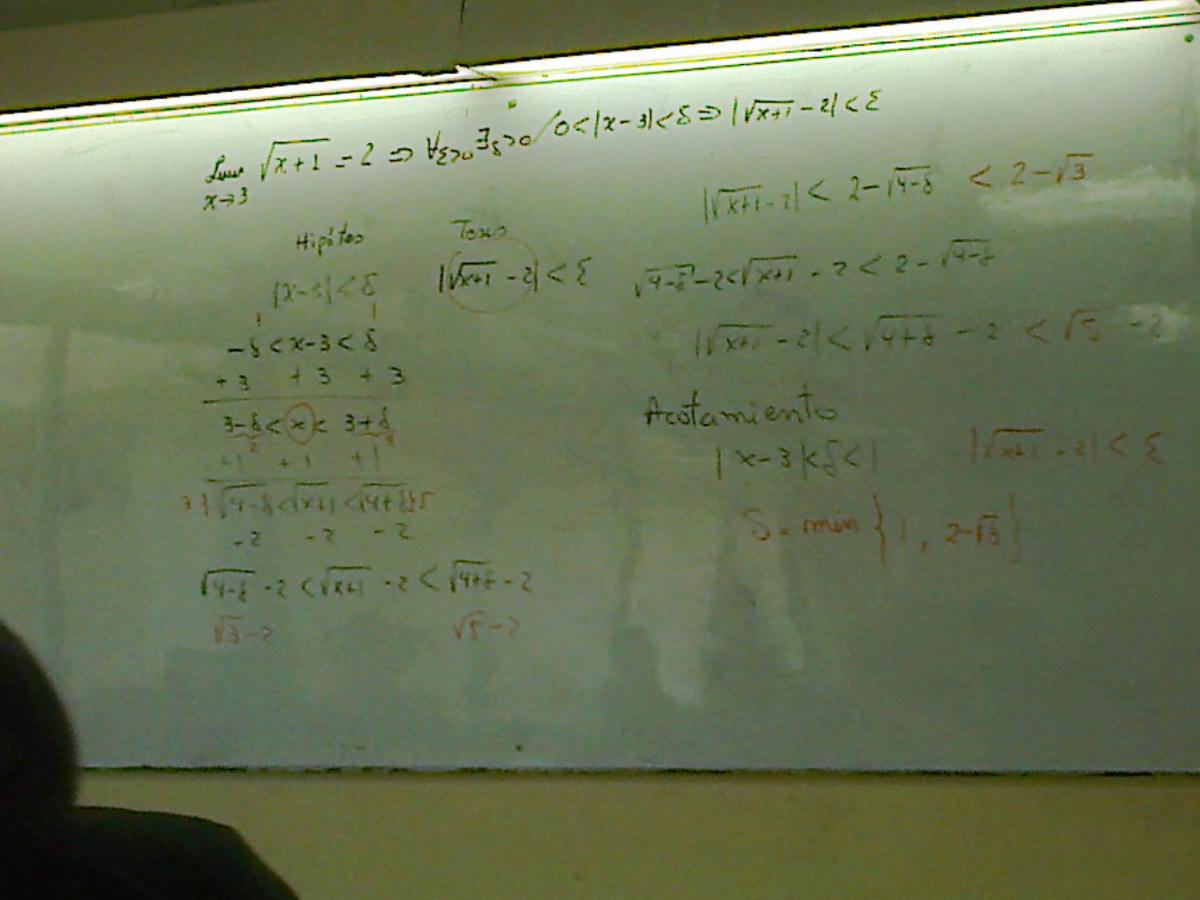 Lim √x+1 = 2 ⇒ ∀ε>0 ∃δ>0 / 0<|x-3|<δ ⇒ |√x+1 - 2| < ε
x→3
Hipótes
|x-3| < δ
-δ < x-3 < δ
+3 +3 +3
3-δ < x < 3+δ
+1 +1 +1
√4-δ < √x+1 < √4+δ
-2 -2 -2
√4-δ - 2 < √x+1 - 2 < √4+δ - 2
√3 - 2 √5 - 2
|√x+1 - 2| < ε
|√x+1 - 2| < 2 - √4-δ < 2 - √3
√4-δ - 2 < √x+1 - 2 < 2 - √4-δ
|√x+1 - 2| < √4+δ - 2 < √5 - 2
Acotamiento
|x-3| < δ < 1 |√x+1 - 2| < ε
δ = min {1, 2-√3}